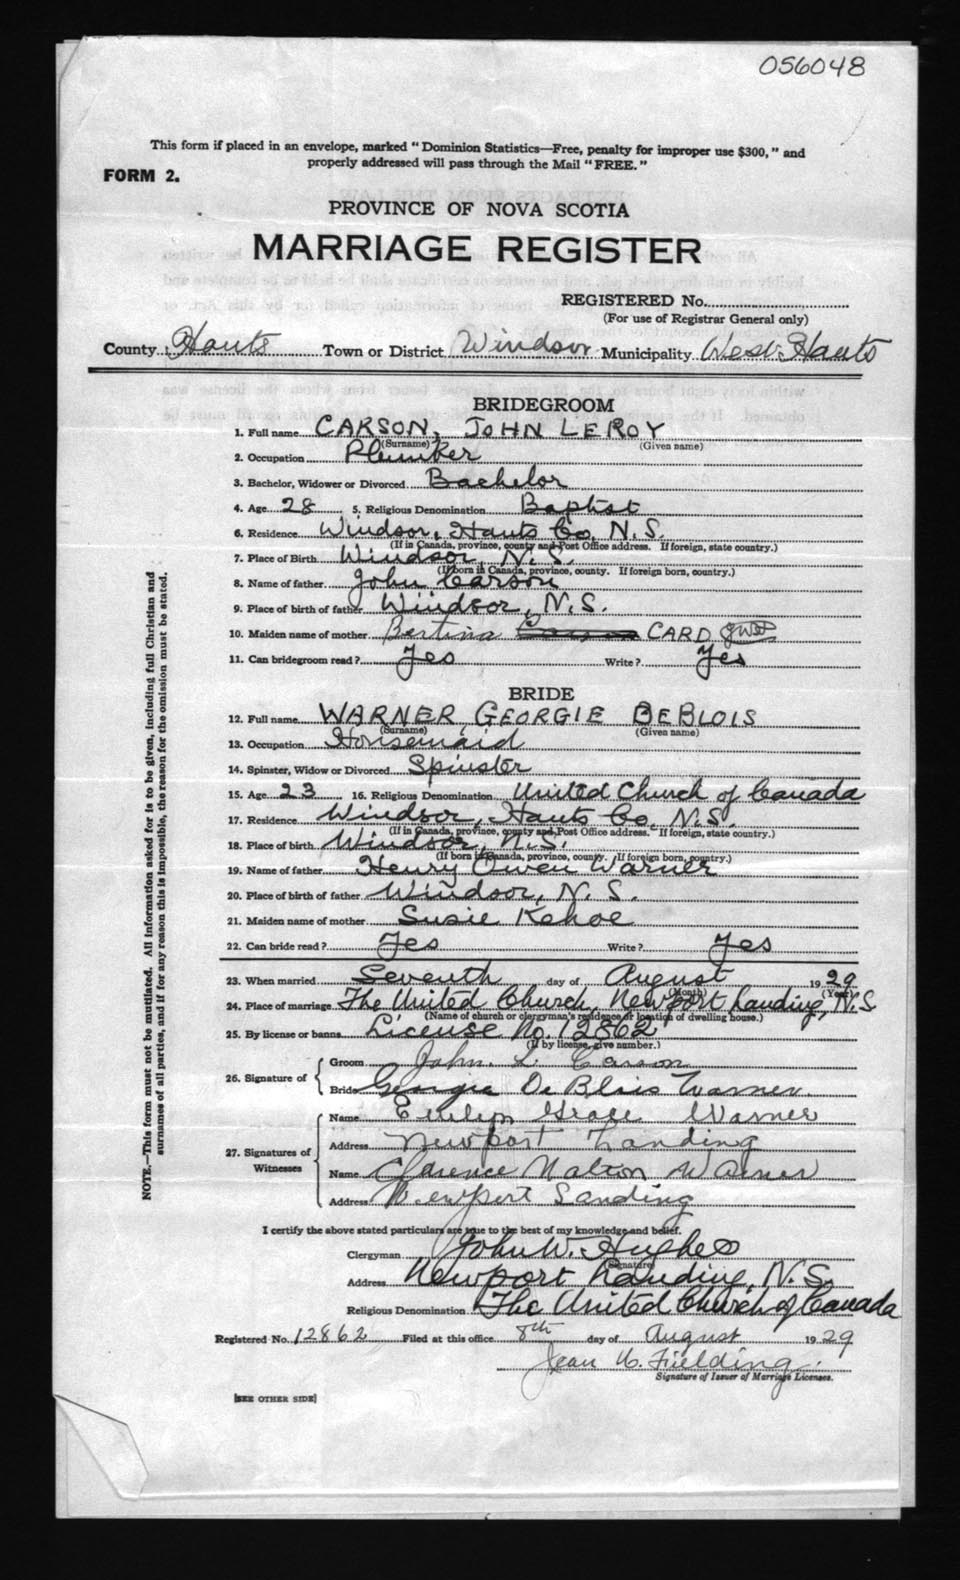 056048
This form if placed in an envelope, marked "Dominion Statistics—Free, penalty for improper use $300," and
properly addressed will pass through the Mail "FREE."
FORM 2.
PROVINCE OF NOVA SCOTIA
MARRIAGE REGISTER
REGISTERED No.
(For use of Registrar General only)
County Hants Town or District Windsor Municipality West Hants
BRIDEGROOM
1. Full name CARSON, JOHN LEROY
(Surname) (Given name)
2. Occupation Plumber
3. Bachelor, Widower or Divorced Bachelor
4. Age 28 5. Religious Denomination Baptist
6. Residence Windsor, Hants Co, N.S.
(If in Canada, province, county and Post Office address. If foreign, state country.)
7. Place of Birth Windsor, N.S.
(If born in Canada, province, county. If foreign born, country.)
8. Name of father John Carson
9. Place of birth of father Windsor, N.S.
10. Maiden name of mother Bertina CARD
11. Can bridegroom read? Yes Write? Yes
BRIDE
12. Full name WARNER, GEORGIE BEBLOIS
(Surname) (Given name)
13. Occupation Housemaid
14. Spinster, Widow or Divorced Spinster
15. Age 23 16. Religious Denomination United Church of Canada
17. Residence Windsor, Hants Co. N.S.
(If in Canada, province, county and Post Office address. If foreign, state country.)
18. Place of birth Windsor, N.S.
(If born in Canada, province, county. If foreign born, country.)
19. Name of father Henry Owen Warner
20. Place of birth of father Windsor, N.S.
21. Maiden name of mother Susie Kehoe
22. Can bride read? Yes Write? Yes
23. When married Seventh day of August 1929
(Month) (Year)
24. Place of marriage The United Church, Newport Landing, N.S
(Name of church or clergyman's residence or location of dwelling house.)
25. By license or banns License No. 12862
(If by license, give number.)
26. Signature of
Groom John. L. Carson
Bride Georgie De Blois Warner.
27. Signatures of Witnesses
Name Evelyn Grace Warner
Address Newport Landing
Name Clarence Walton Warner
Address Newport Landing
I certify the above stated particulars are true to the best of my knowledge and belief.
Clergyman John W. Hughes
(Signature)
Address Newport Landing, N.S.
Religious Denomination The United Church of Canada
Registered No. 12862 Filed at this office 8th day of August 1929
Jean W. Fielding.
Signature of Issuer of Marriage Licenses.
[SEE OTHER SIDE]
NOTE.—This form must not be mutilated. All information asked for is to be given, including full Christian and
surnames of all parties, and if for any reason this is impossible, the reason for the omission must be stated.